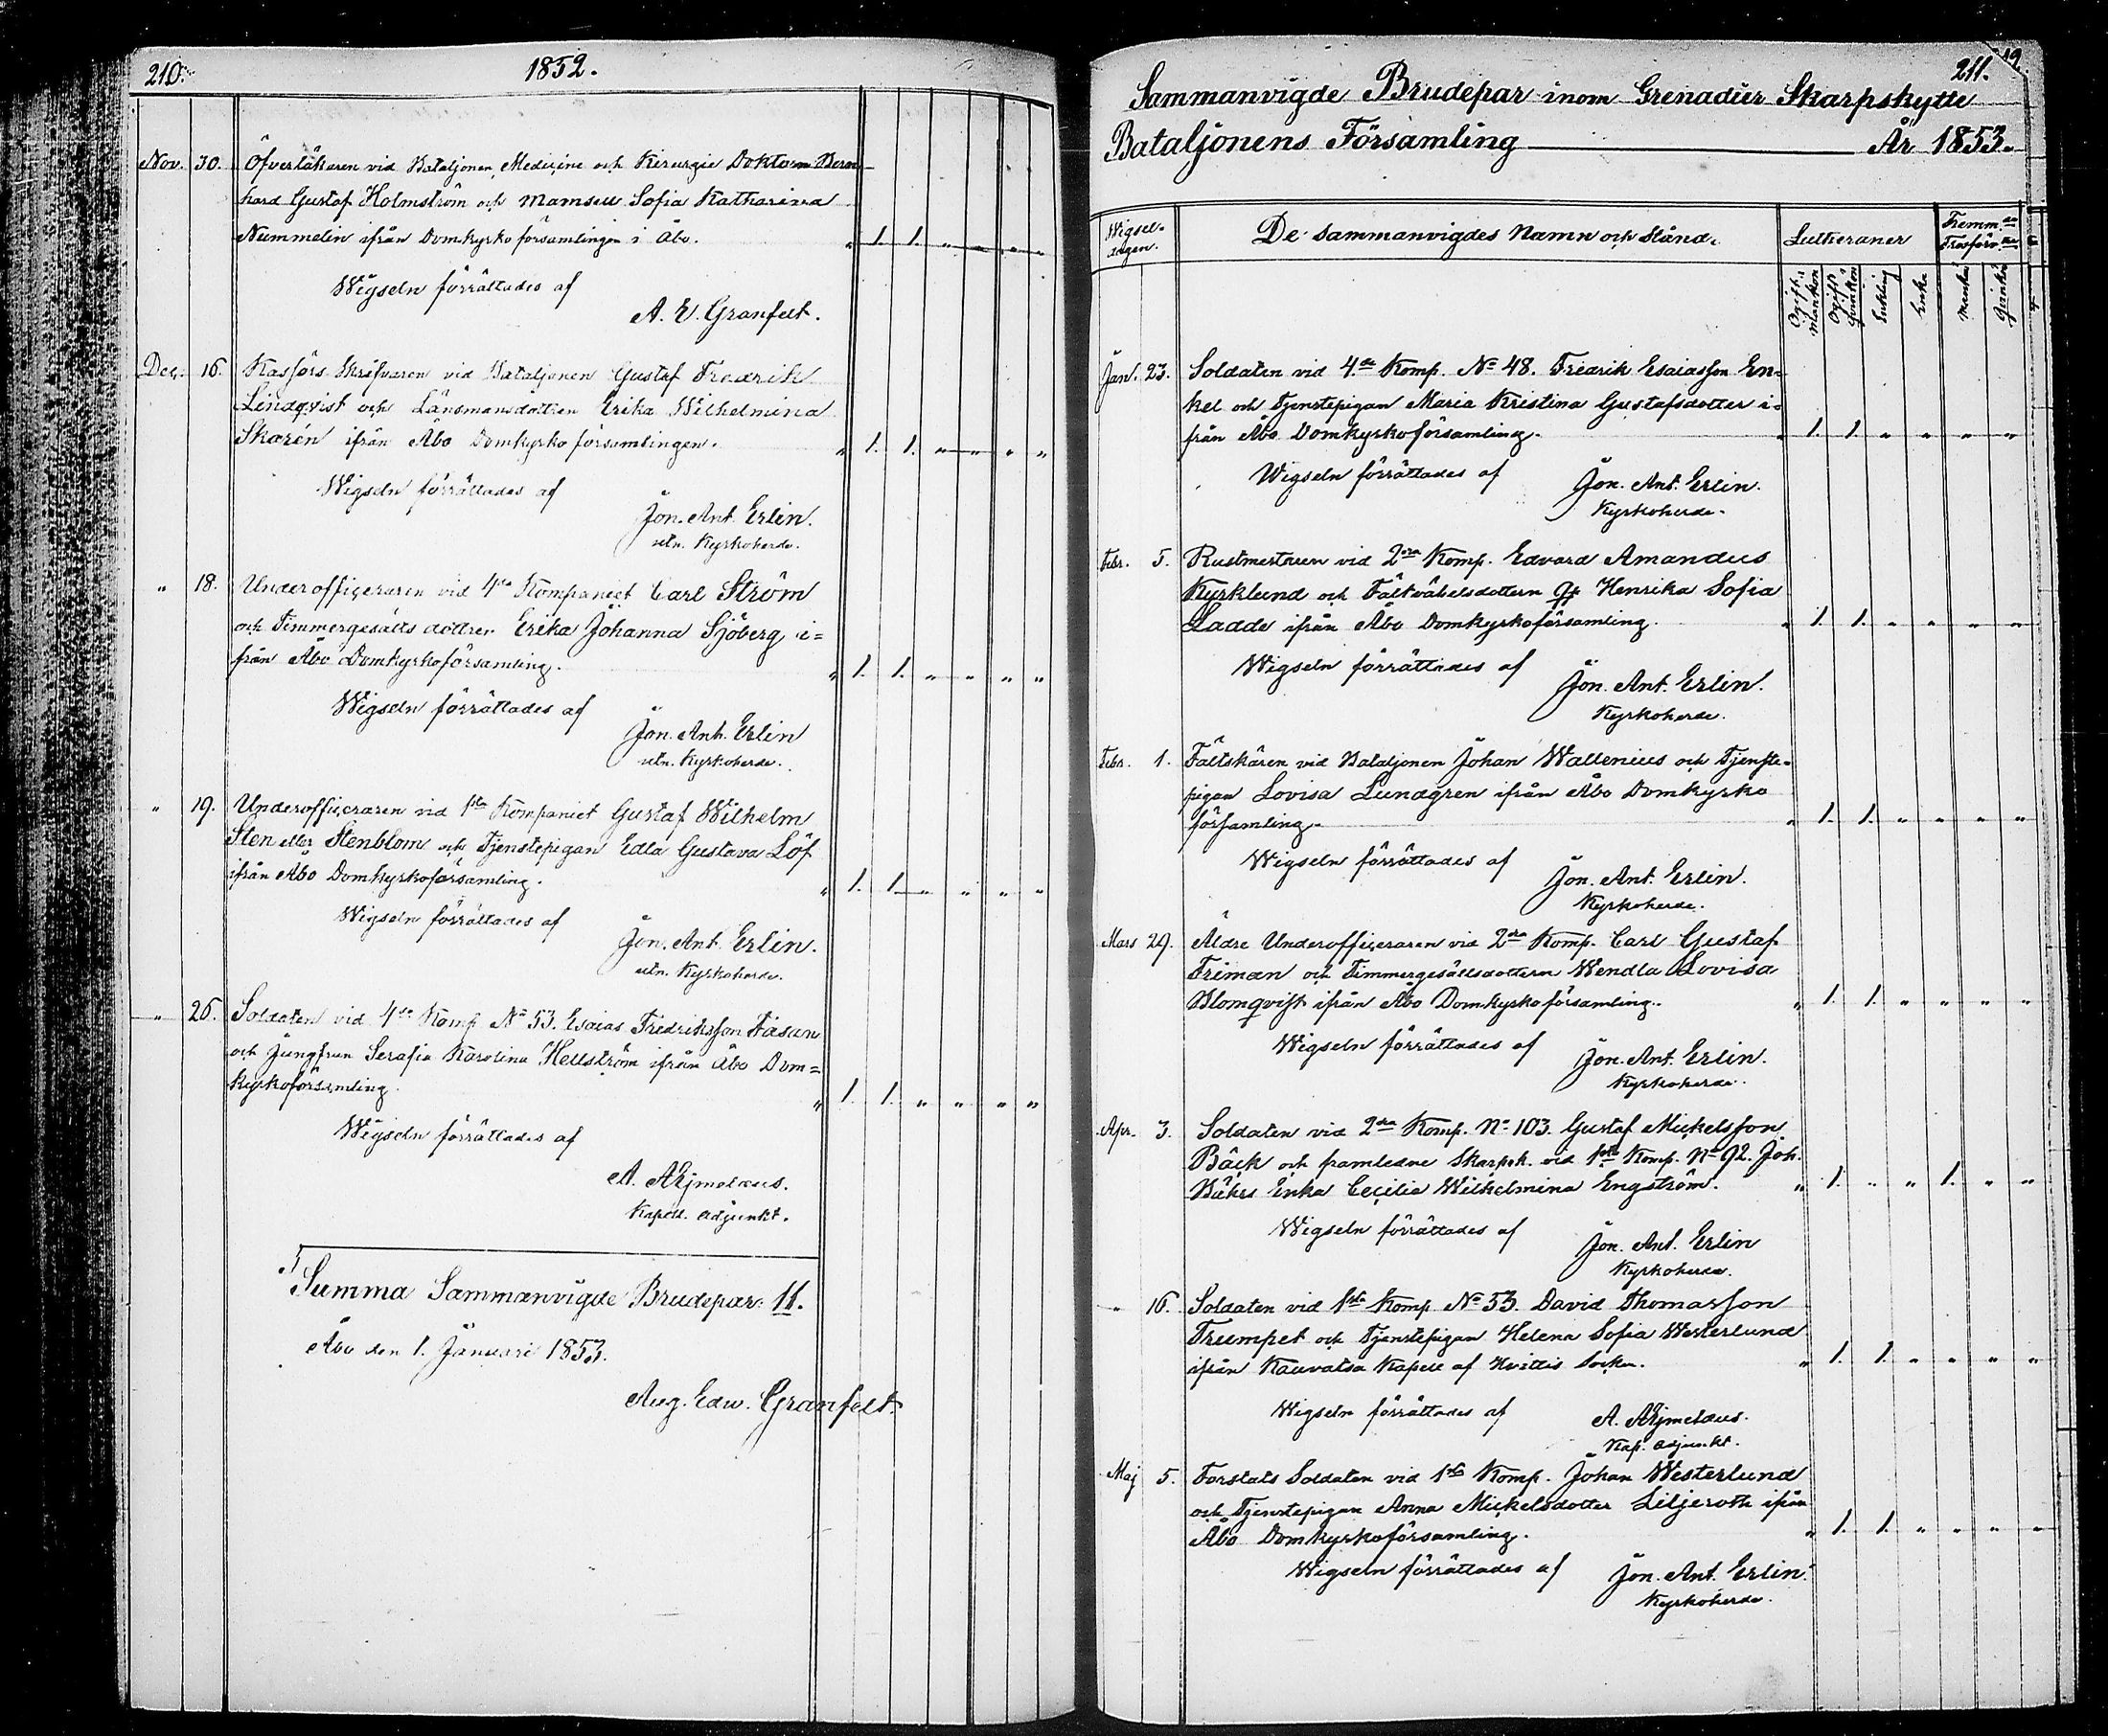 210.
1852.
Nov. 30. Öfverläkaren vid Bataljonen, Medicine och Kirurgie Doktorn Bern-
hard Gustaf Holmström och Mamsell Sofia Katharina
Nummelin ifrån Domkyrko församlingen i Åbo. " 1. 1. " " " "
Wigseln förrättades af
A. E. Granfelt.
Dec. 16. Kassörs Skrifvaren vid Bataljonen Gustaf Fredrik
Lindqvist och Länsmansdottren Erika Wilhelmina
Skarén ifrån Åbo Domkyrko församlingen. " 1. 1. " " " "
Wigseln förrättades af
Jon. Ant. Erlin.
utn. Kyrkoherde.
" 18. Underofficeraren vid 4de Kompaniet Carl Ström
och Timmergesälls dottren Erika Johanna Sjöberg i=
från Åbo Domkyrkoförsamling. " 1. 1. " " " "
Wigseln förrättades af
Jon. Ant. Erlin
utn. Kyrkoherde.
" 19. Underofficeraren vid 1sta Kompaniet Gustaf Wilhelm
Sten eller Stenblom och Tjenstepigan Edla Gustava Löf
ifrån Åbo Domkyrkoförsamling. " 1. 1. " " " "
Wigseln förrättades af
Jon. Ant. Erlin.
utn. Kyrkoherde.
" 26. Soldaten vid 4de Komp No 53. Esaias Fredriksson Fasan
och Jungfrun Serafia Karolina Hellström ifrån Åbo Dom=
kyrkoförsamling. " 1. 1. " " " "
Wigseln förrättades af
A. Aejmelæus.
Kapell. adjunkt.
Summa Sammanvigde Brudepar: 11.
Åbo den 1. Januari 1853.
Aug. Edw. Granfelt.
211.
Sammanvigde Brudepar inom Grenadier Skarpskytte
Bataljonens Församling År 1853.
Wigsel-
dagen. De sammanvigdes Namn och stånd. Lutheraner Fremm-de
Trosförv.
Ogift Mankön Ogift Qvinkön Enkling Enka Mankön Qvinkön
Jan. 23. Soldaten vid 4de Komp. No 48. Fredrik Esaiasson En=
kel och Tjenstepigan Maria Kristina Gustafsdotter i=
från Åbo Domkyrkoförsamling. " 1. 1. " " " "
Wigseln förrättades af
Jon. Ant. Erlin.
Kyrkoherde.
Febr. 5. Rustmestaren vid 2dra Komp. Edvard Amandus
Kyrklund och Fältväbelsdottern Henrika Sofia
Ladde ifrån Åbo Domkyrkoförsamling. " 1. 1. " " " "
Wigseln förrättades af
Jon. Ant. Erlin.
Kyrkoherde.
Febr. 1. Fältskären vid Bataljonen Johan Wallenius och Tjenste=
pigan Lovisa Lundgren ifrån Åbo Domkyrko
församling. " 1. 1. " " " "
Wigseln förrättades af
Jon. Ant. Erlin.
Kyrkoherde.
Mars 29. Äldre Underofficeraren vid 2dra Komp. Carl Gustaf
Friman och Timmergesällsdottern Wendla Lovisa
Blomqvist ifrån Åbo Domkyrkoförsamling. " 1. 1. " " " "
Wigseln förrättades af
Jon. Ant. Erlin.
Kyrkoherde.
Apr. 3. Soldaten vid 2dra Komp. No 103. Gustaf Mickelsson
Bäck och framledne Skarpsk. vid 1sta Komp. No 92. Joh.
Enka Cecilia Wilhelmina Engström. " 1. " " 1. " "
Wigseln förrättades af
Jon. Ant. Erlin
Kyrkoherde.
" 16. Soldaten vid 1sta Komp No 53. David Thomasson
Trumpet och Tjenstepigan Helena Sofia Westerlund
ifrån Kauvatsa Kapell af Hvittis Socken. " 1. 1. " " " "
Wigseln förrättades af
A. Aejmelæus.
Kap. adjunkt.
Maj 5. Forstats Soldaten vid 1sta Komp. Johan Westerlund
och Tjenstepigan Anna Mickelsdotter Liljeroth ifrån
Åbo Domkyrkoförsamling. " 1. 1. " " " "
Wigseln förrättades af
Jon. Ant. Erlin.
Kyrkoherde.